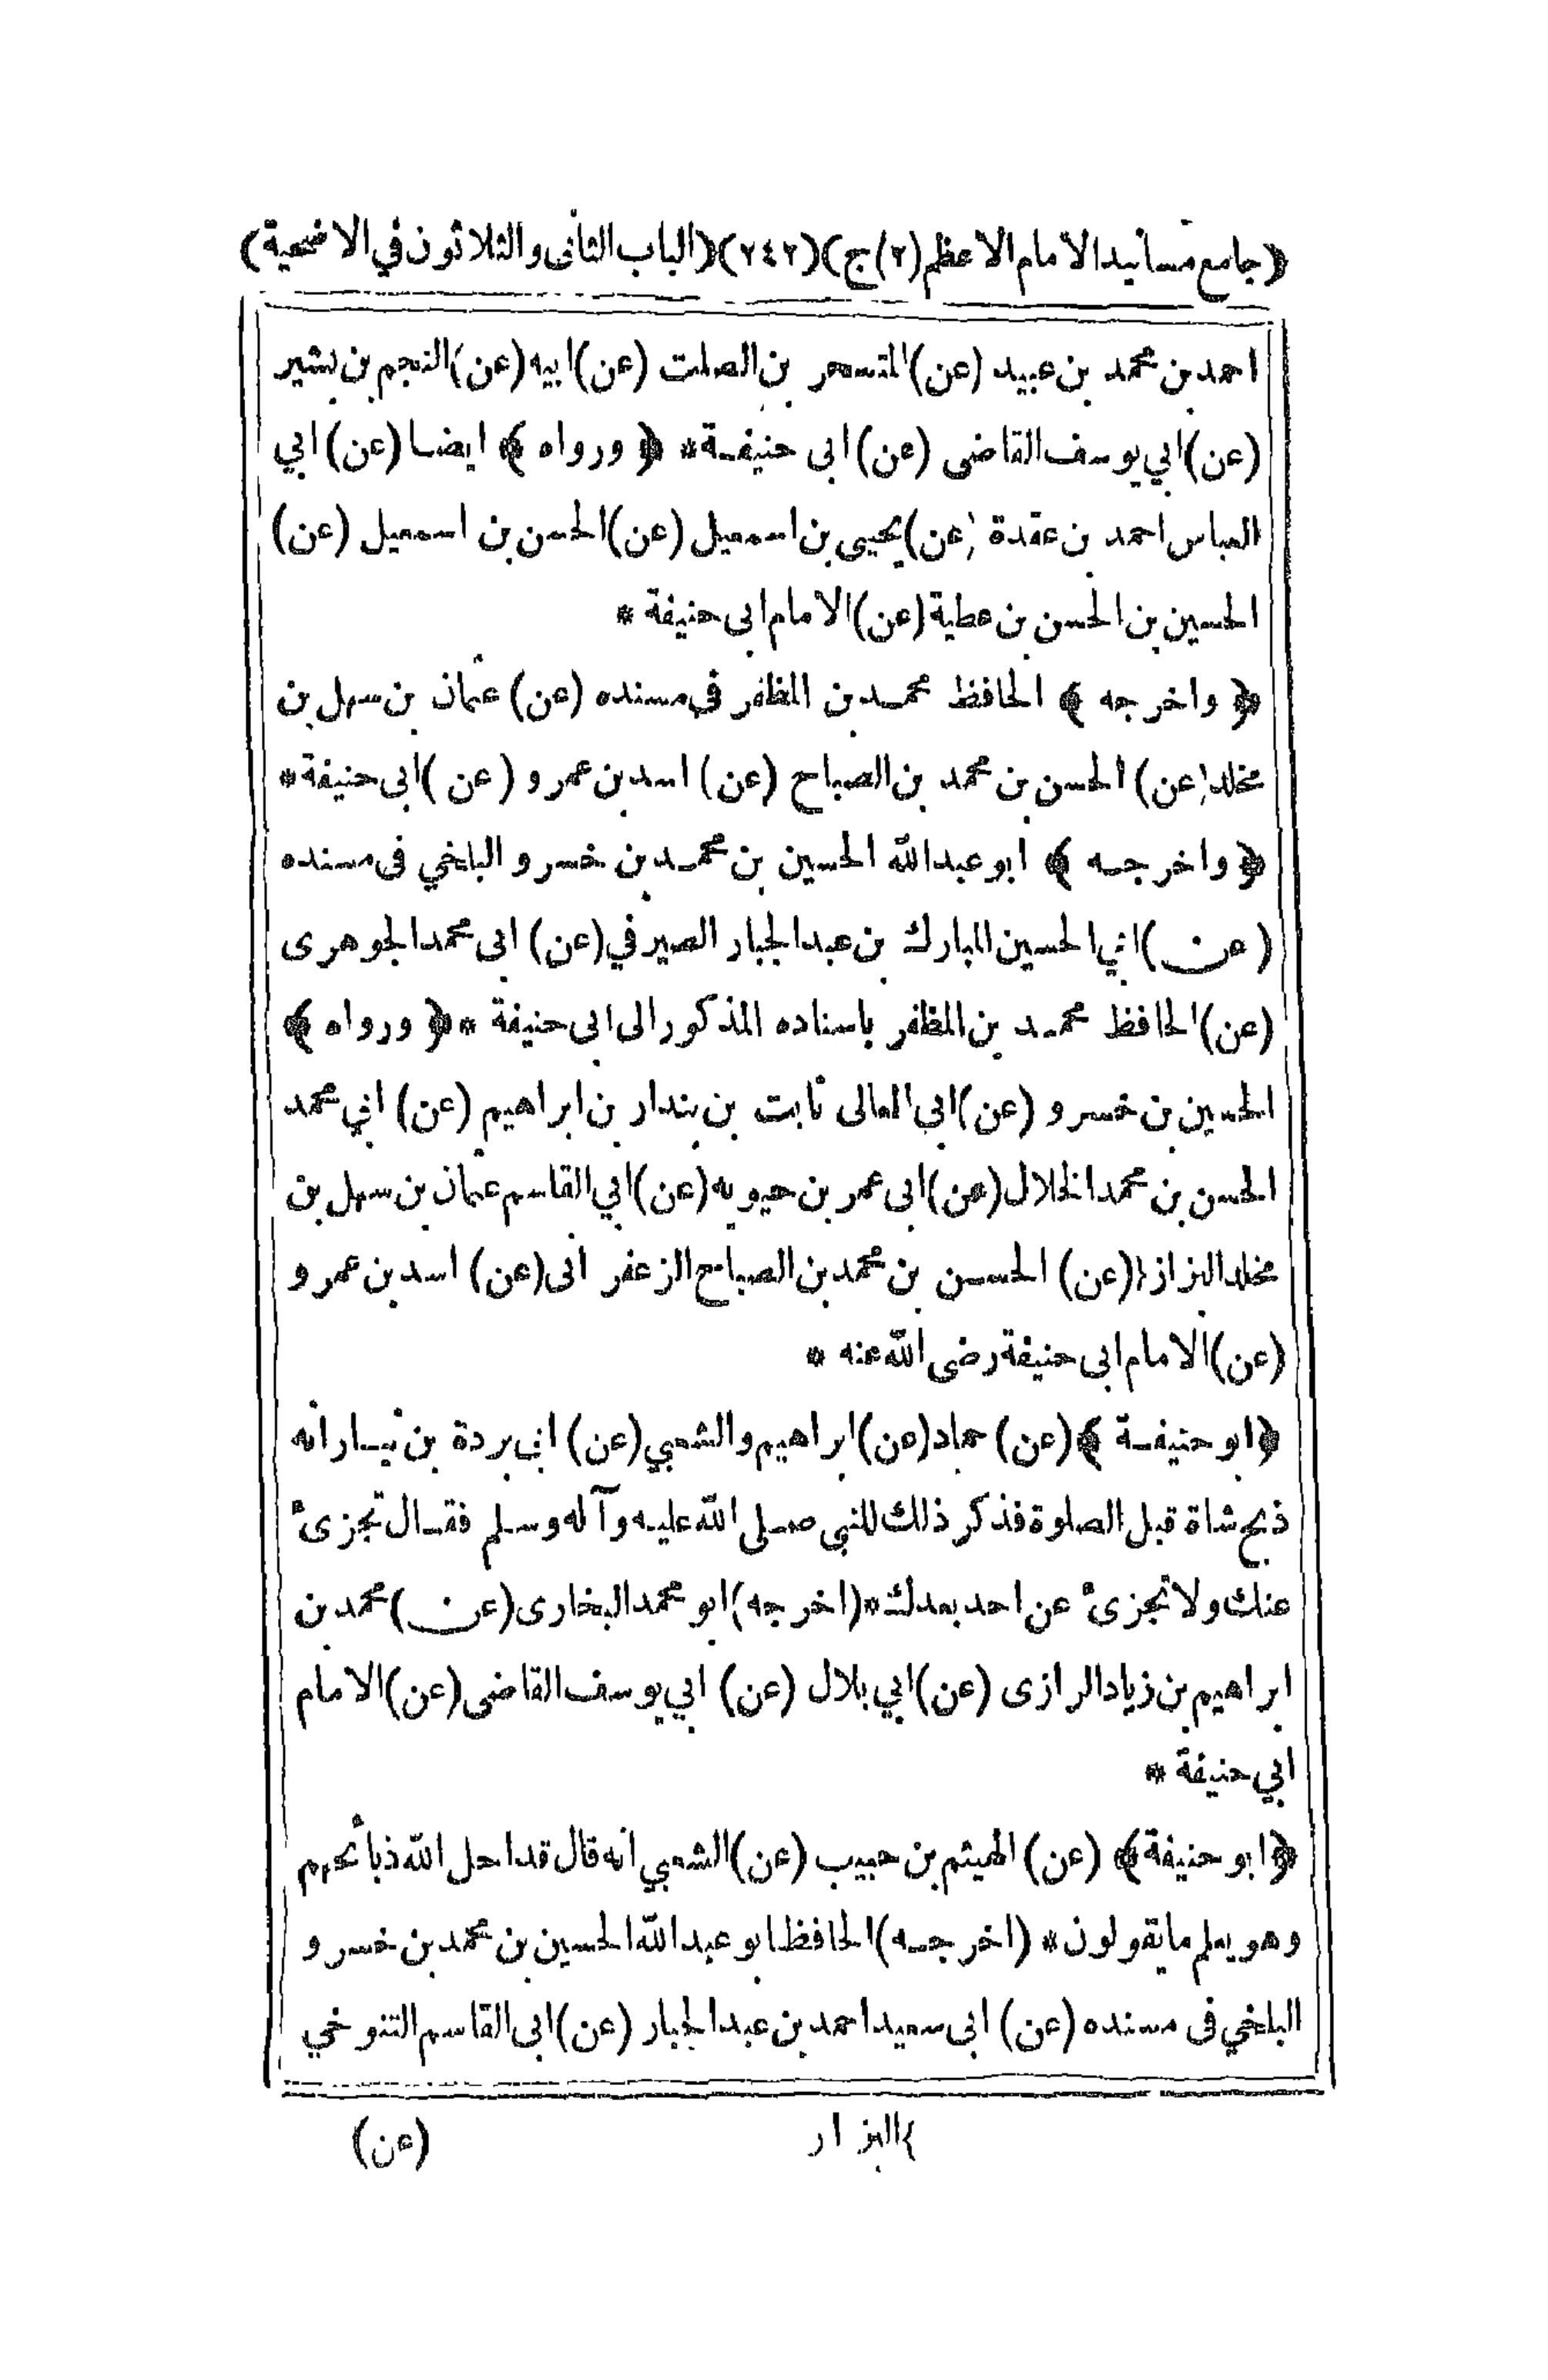 ﴿جامع مسانيد الامام الاعظم (٢) ج﴾ (٢٤٢) ﴿الباب الثانى والثلاثون في الاضحية﴾
احمد بن محمد بن عبيد (عن) بن الصلت (عن) ابيه (عن) النجم بن بشير
(عن) ابي يوسف القاضى (عن) ابى حنيفة * ﴿ ورواه ﴾ ايضا (عن) ابي
العباس احمد بن عقدة (عن) يحيى بن اسمعيل (عن) الحسن بن اسمعيل (عن)
الحسين بن الحسن بن عطية (عن) الامام ابى حنيفة *
﴿ واخرجه ﴾ الحافظ محمد بن المظفر في مسنده (عن) عثمان بن سهل بن
مخلد (عن) الحسن بن محمد بن الصباح (عن) اسد بن عمرو (عن) ابى حنيفة *
﴿ واخرجه ﴾ ابو عبد الله الحسين بن محمد بن خسرو البلخي فى مسنده
(عن) ابي الحسين المبارك بن عبد الجبار الصيرفي (عن) ابى محمد الجوهرى
(عن) الحافظ محمد بن المظفر باسناده المذكور الى ابى حنيفة * ﴿ ورواه ﴾
الحسين بن خسرو (عن) ابي المعالى ثابت بن بندار بن ابراهيم (عن) ابي محمد
الحسن بن محمد الخلال (عن) ابى عمر بن حيويه (عن) ابي القاسم عثمان بن سهل بن
مخلد البزاز} (عن) الحسن بن محمد بن الصباح الزعفرانى (عن) اسد بن عمرو
(عن) الامام ابى حنيفة رضى الله عنه *
﴿ابو حنيفة﴾ (عن) حماد (عن) ابراهيم والشعبي (عن) ابي بردة بن نيار انه
ذبح شاة قبل الصلوة فذكر ذلك للنبي صلى الله عليه وآله وسلم فقال تجزئ
عنك ولا تجزئ عن احد بعدك * (اخرجه) ابو محمد البخارى (عن) محمد بن
ابراهيم بن زياد الرازى (عن) ابي بلال (عن) ابي يوسف القاضى (عن) الامام
ابي حنيفة *
﴿ابو حنيفة﴾ (عن) الهيثم بن حبيب (عن) الشعبي انه قال قد احل الله ذبائحهم
وهو يعلم ما يقولون * (اخرجه) الحافظ ابو عبد الله الحسين بن محمد بن خسرو
البلخي فى مسنده (عن) ابى سعيد احمد بن عبد الجبار (عن) ابى القاسم التنوخي
}البزار
(عن)